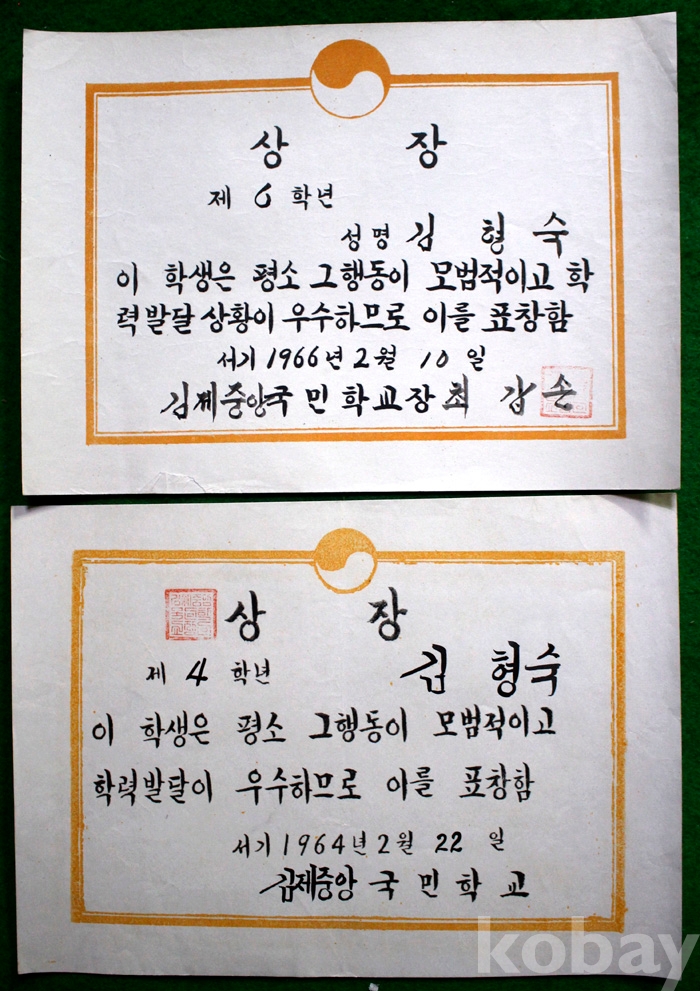 상 장
제 6 학년
성명 김 형 숙
이 학생은 평소 그행동이 모범적이고 학
력발달 상황이 우수하므로 이를 표창함
서기 1966년 2월 10 일
김제중앙국민학교장 최 갑 손
상 장
제 4 학년 김 형숙
이 학생은 평소 그행동이 모범적이고
학력발달이 우수하므로 이를 표창함
서기 1964년 2월 22 일
김제중앙 국민학교
kobay